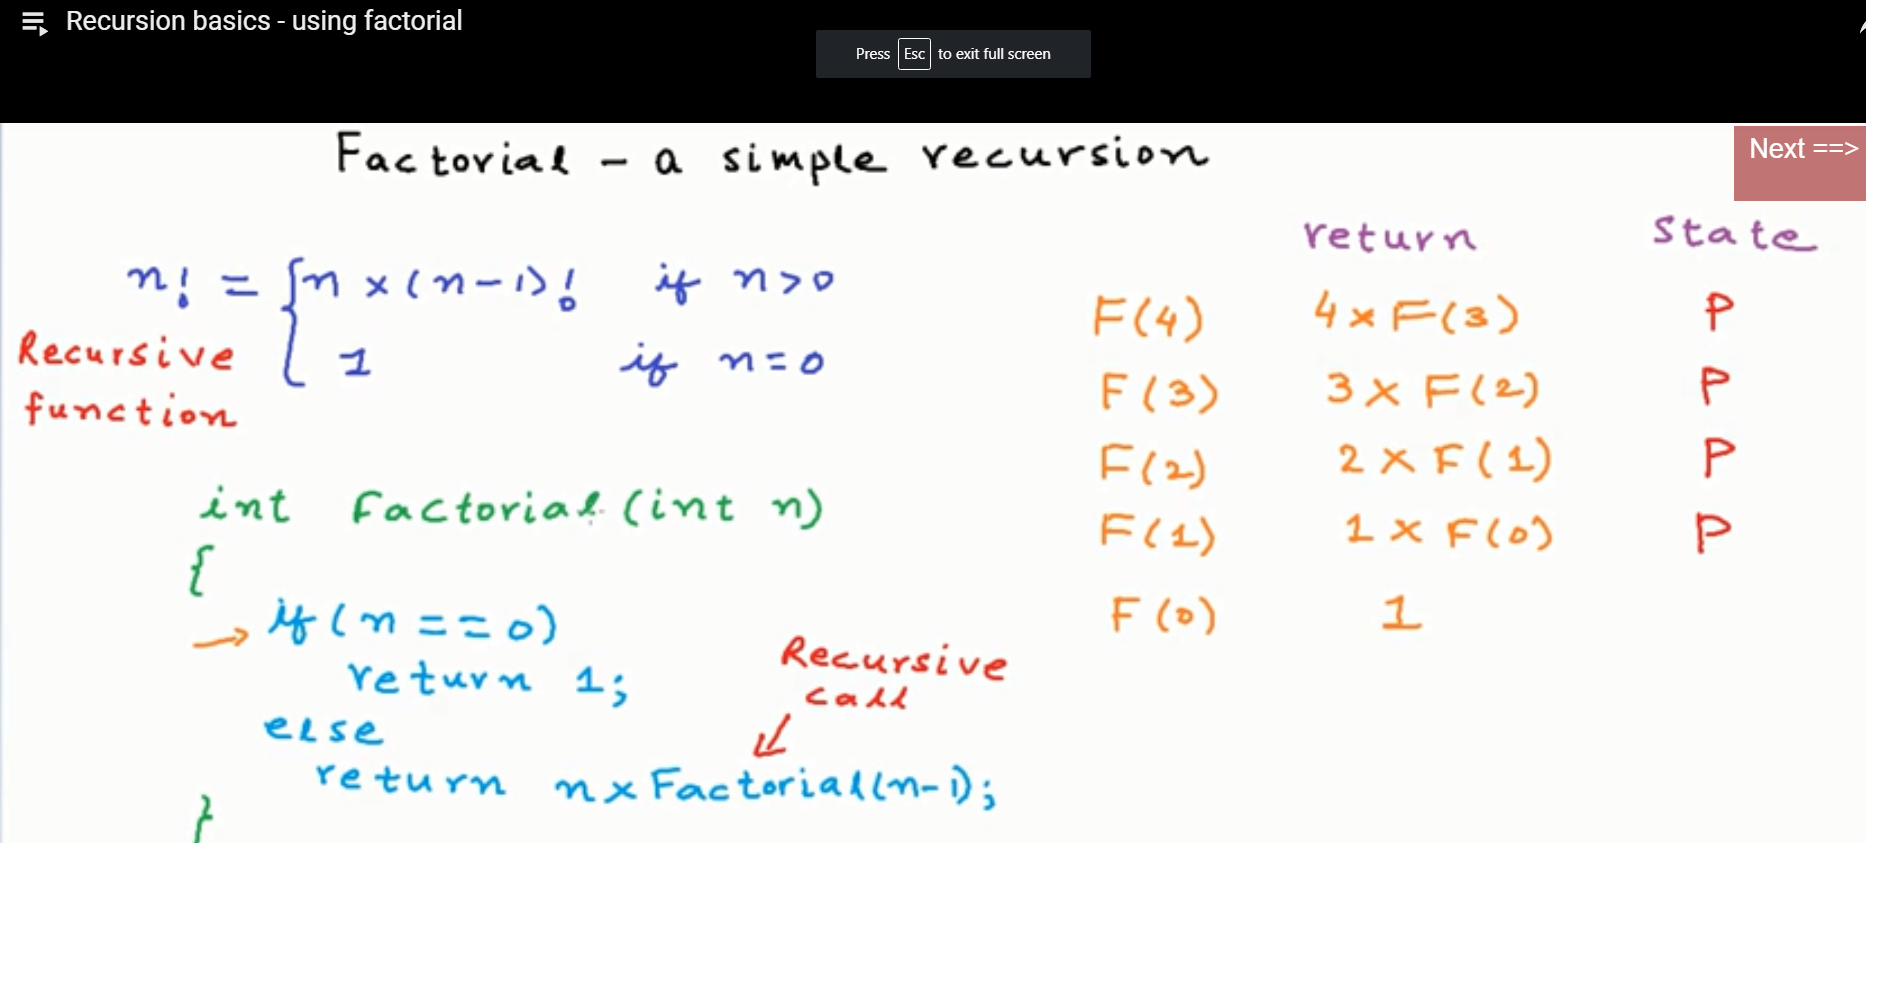 Recursion basics - using factorial
Press Esc to exit full screen
Factorial - a simple recursion
Next ==>
n! = { n × (n-1)! if n>0
1 if n=0
Recursive
function
int Factorial (int n)
{
if (n == 0)
return 1;
else
return n x Factorial(n-1);
}
Recursive
call
return state
F(4) 4 x F(3) P
F(3) 3 x F(2) P
F(2) 2 x F(1) P
F(1) 1 x F(0) P
F(0) 1